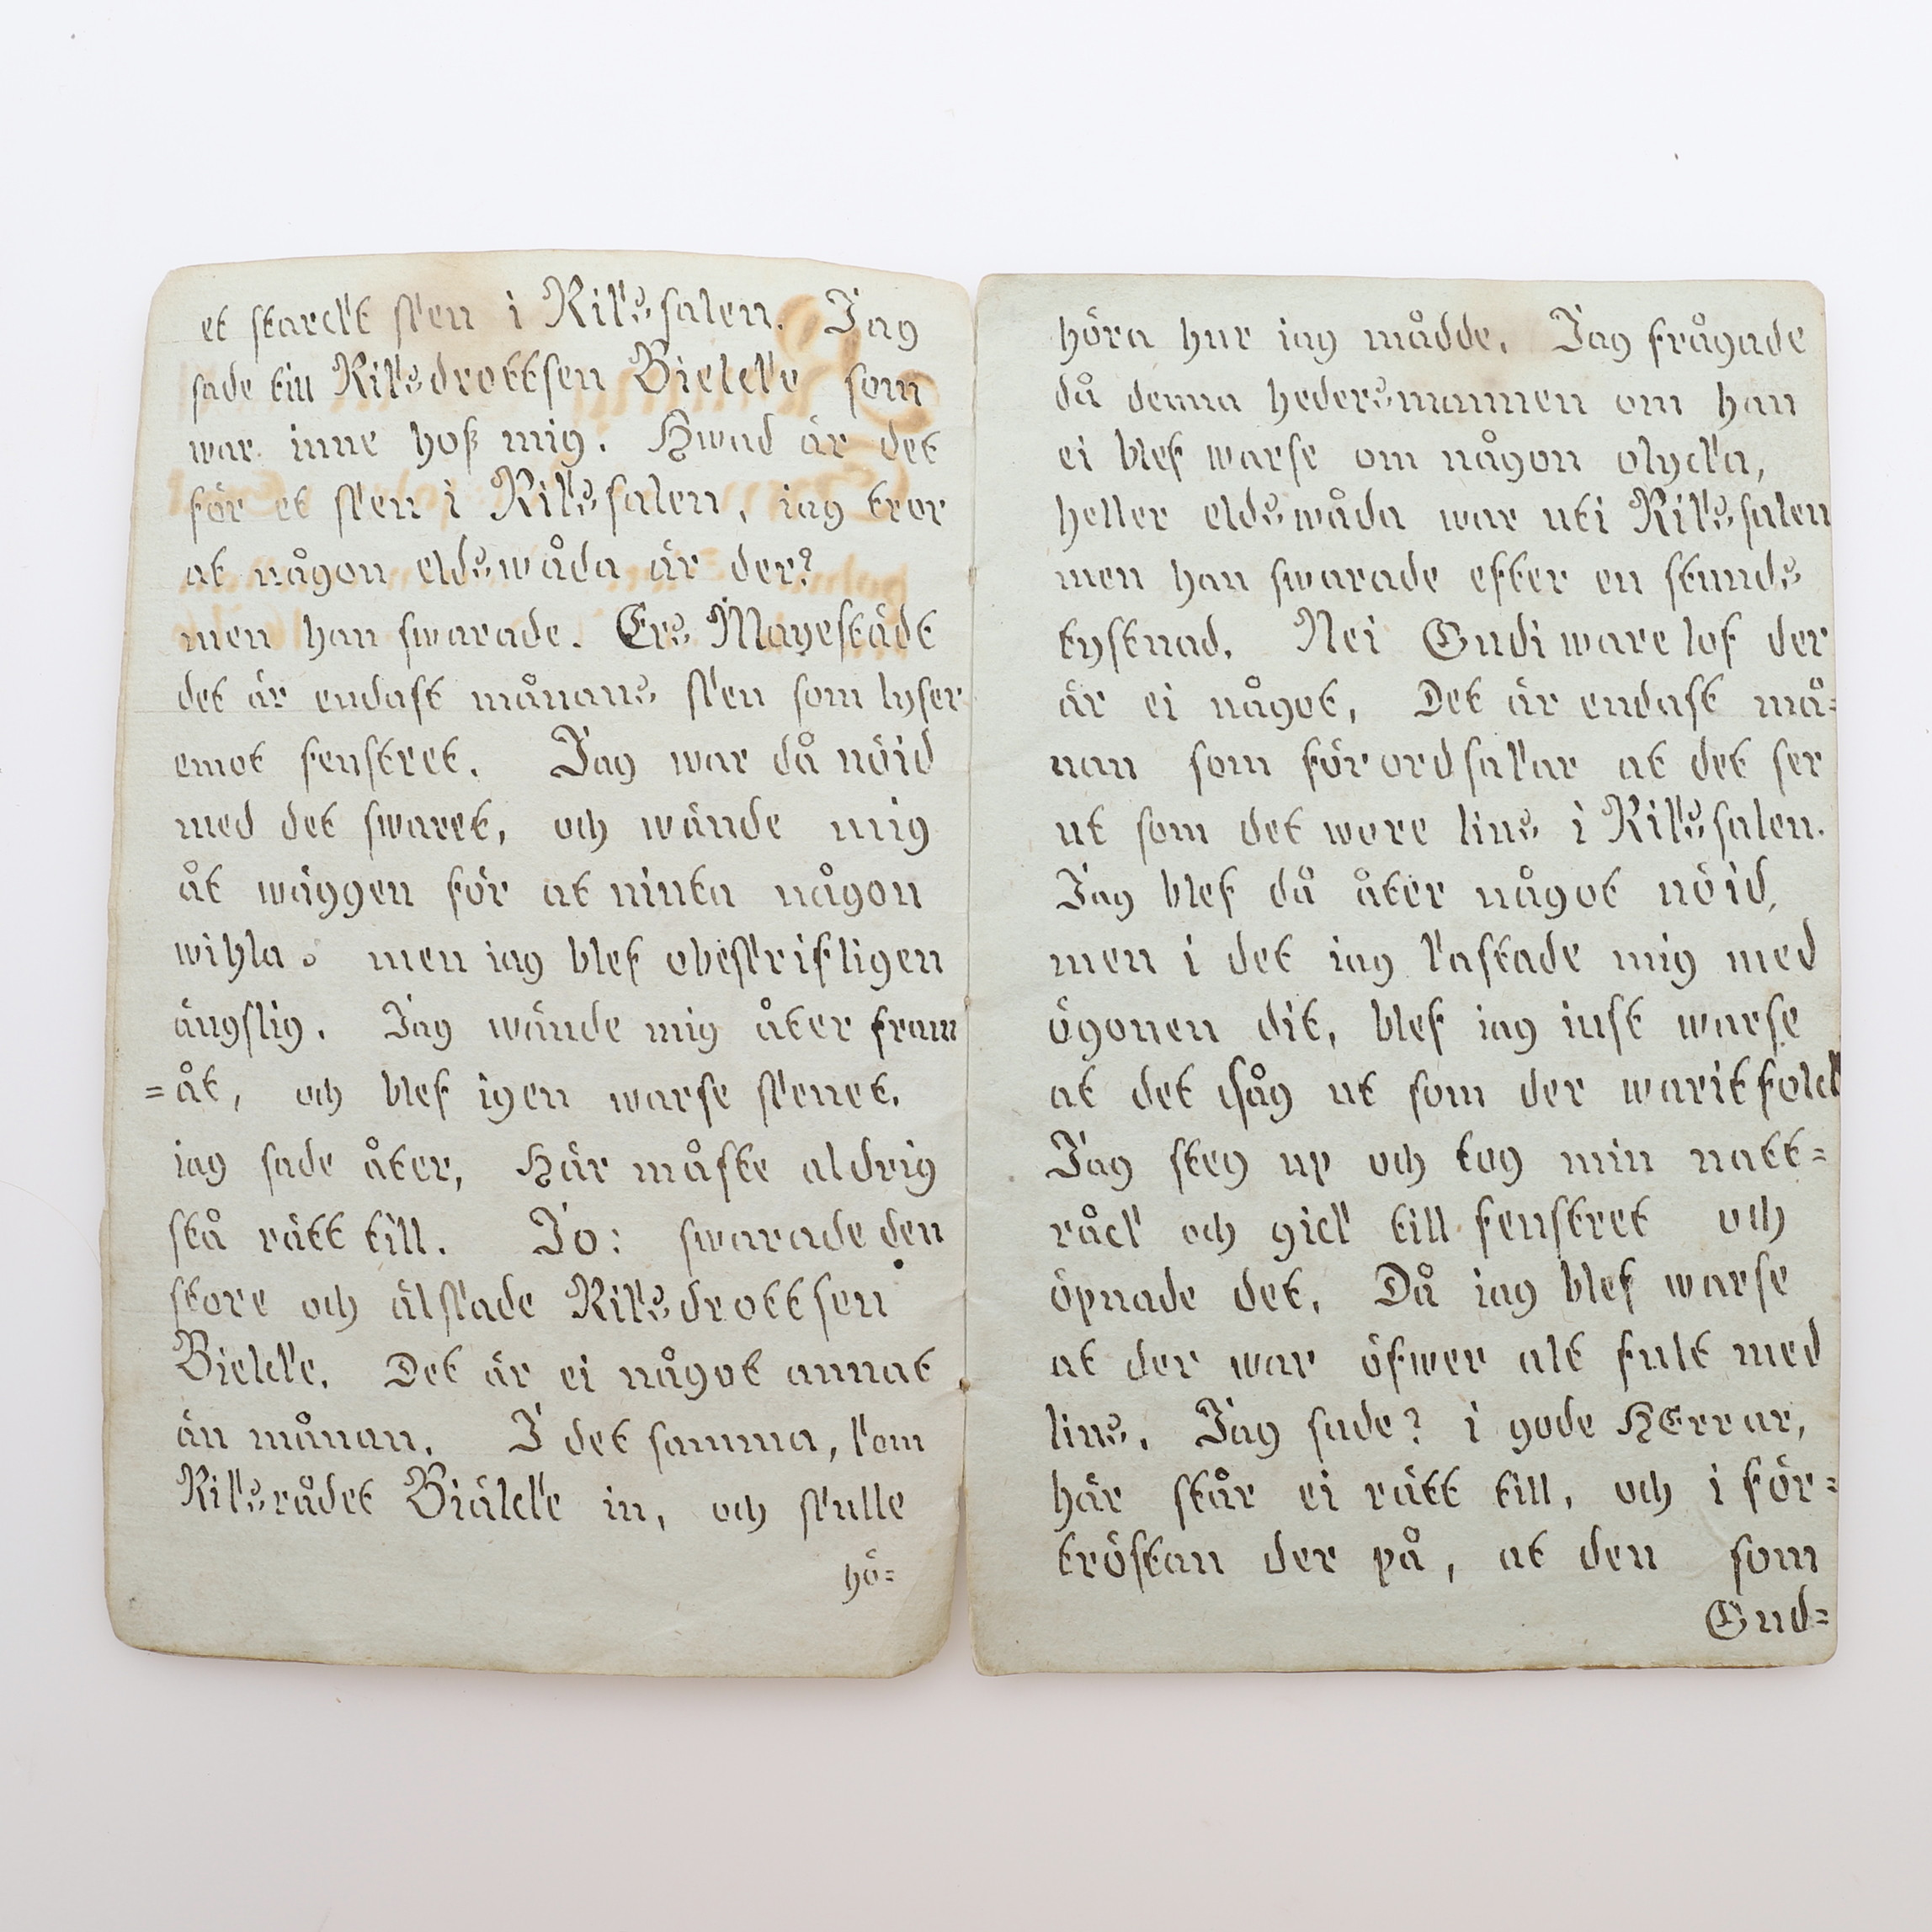 et starckt sken i Riks salen. Jag
sade till Riksdrottsen Bielcke som
war inne hoß mig. Hwad är det
för et sken i Riks salen, iag tror
at någon eldswåda är der?
men han swarade. Ers Mayestädt
det är endast månans sken som lyser
emot fenstret. Jag war då nöid
med det swaret, och wände mig
åt wäggen för at niuta någon
wihla. men iag blef obeskrifligen
ängslig. Jag wände mig åter fram
=åt, och blef igen warse skenet.
iag sade åter, Här måste aldrig
stå rätt till. Jo: swarade den
store och älskade Riksdrottsen
Bielcke. Det är ei något annat
än månan. I det samma, kom
Riksrådet Biälcke in, och skulle
hö=
höra hur iag mådde. Jag frågade
då denna hedersmannen om han
ei blef warse om någon olycka,
heller eldswåda war uti Riks salen
men han swarade efter en stunds
tystnad. Nei Gudi ware lof der
är ei något, Det är endast må=
nan som förordsakar at det ser
ut som det wore lius i Riks salen.
Jag blef då åter något nöid,
men i det iag kastade mig med
ögonen dit, blef iag iust warse
at det såg ut som der warit folck
Jag steg up och tog min natt=
råck och gick till fenstret och
öpnade det. Då iag blef warse
at der war öfwer alt fult med
lius. Jag sade? i gode HErrar,
här står ei rätt till, och i för=
tröstan der på, at den som
Gud=